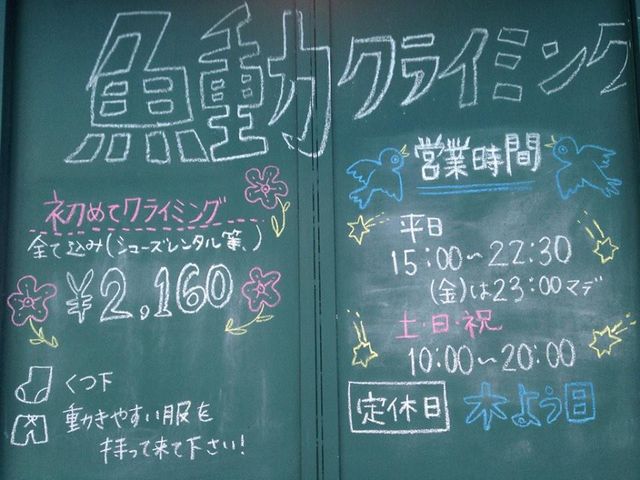 魚動力クライミング
初めてクライミング
全て込み(シューズレンタル等、)
¥2,160
くつ下
動きやすい服を
持って来て下さい!
営業時間
平日
15:00~22:30
(金)は23:00マデ
土・日・祝
10:00~20:00
定休日 木よう日